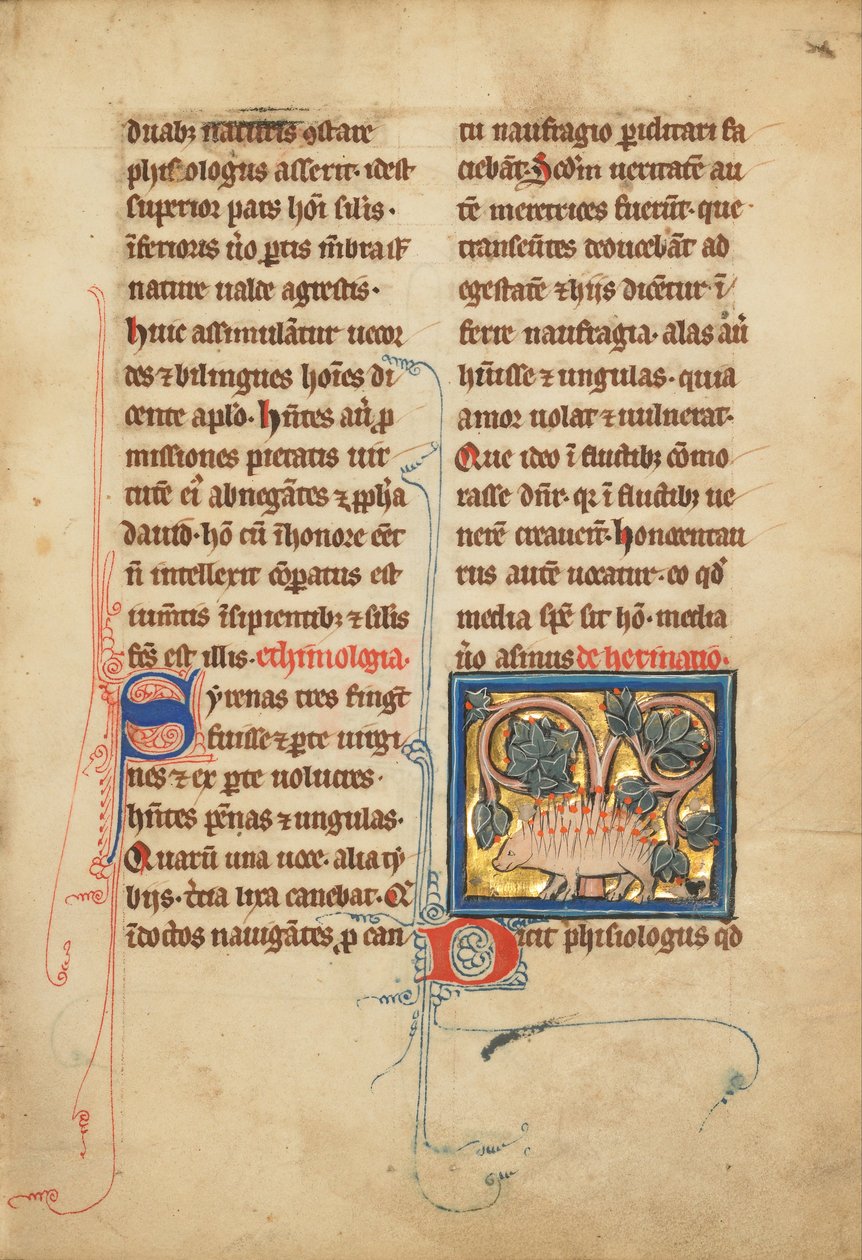 duabꝫ naturis ꝯstare
phisiologus asserit· idest
superior pars hōi silis·
īferioris ů̄o ꝑtis m̄bra ist͛
nature ualde agrestis·
huic assimulāt͛ uecor
des ⁊ bilingues hoīes di
cente aplo· hn̄tes aū̄ ꝓ
missiones pietatis uir
tutē eiꝰ abnegātes ⁊ ꝓpha
dauid· hō cū īhonore eēt
n̄ intellexit cōparatus est
iumētis īsipientibꝫ ⁊ silis
fc̄s est illis· ethimologia·
Syrenas tres fingt̄
fuisse ⁊ ꝑte uirgi
nes ⁊ ex ꝑte uolucres·
hn̄tes pēnas ⁊ ungulas·
Quarū una uoce· alia ty
bijs· t̄cia lira canebat· Q̄
īdoctos nauigātes ꝓ can
tu naufragio ꝑiclitari fa
ciebāt· Scd̄m ueritatē au
tē meretrices fuerūt· que
transeūtes deducebāt ad
egestatē ⁊ hijs dicētur ī
ferre naufragia· alas aū̄
hūisse ⁊ ungulas· quia
amor uolat ⁊ uulnerat·
Que ideo ī fluctibꝫ cōmo
rasse dn̄r· qꝛ ī fluctibꝫ ue
nerē creauerūt· honocentau
rus autē uocatur· eo qd̓
media spē sit hō· media
ů̄o asinus de herinatio·
Dicit phisiologus qd̓